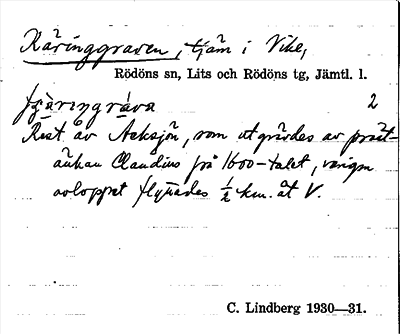 Käringgraven, tjäm i Vike,
Rödöns sn, Lits och Rödöns tg, Jämtl. l.
2
Rest av Acksjön, som utgrävdes av präst-
änkan Claudius på 1600-talet,
avloppet flyttades ½ km. åt V.
C. Lindberg 1930—31.